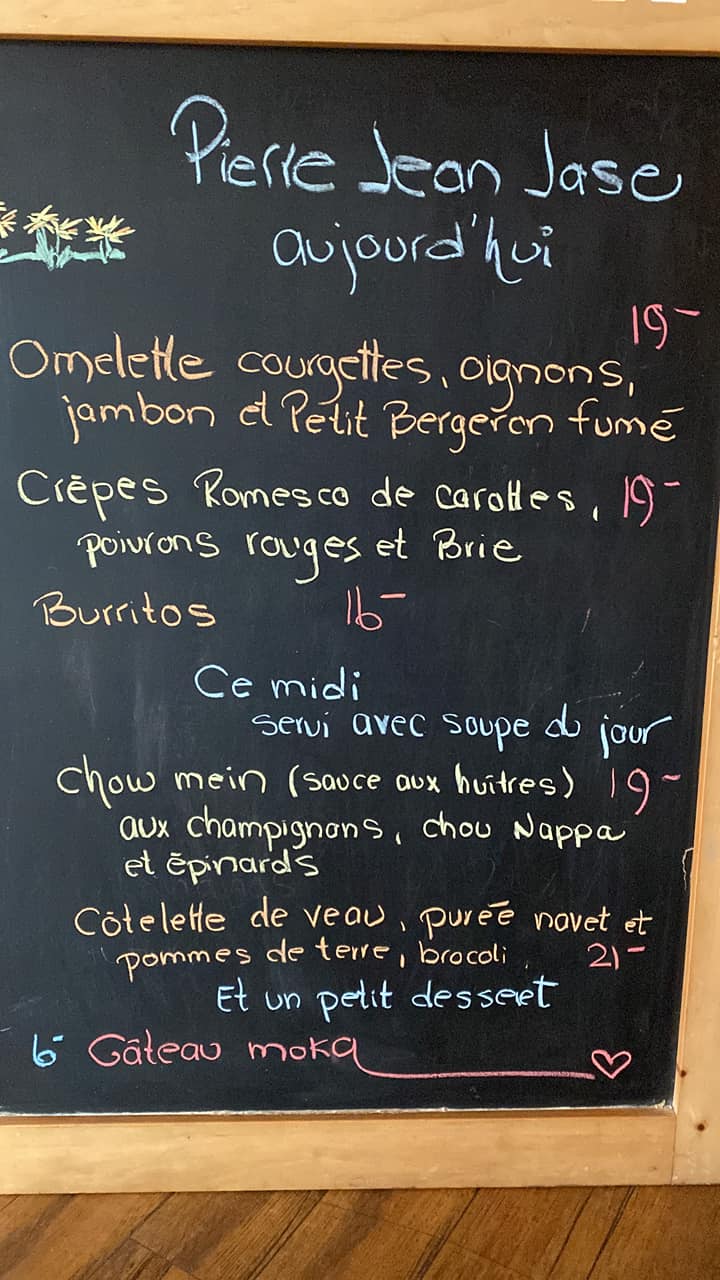 Pierre Jean Jase
aujourd'hui
19-
Omelette courgettes, oignons,
jambon et Petit Bergeron fumé
Crêpes Romesco de carottes, 19-
poivrons rouges et Brie
Burritos 16-
Ce midi
servi avec soupe du jour
Chow mein (sauce aux huîtres) 19-
aux champignons, chou Nappa
et épinards
Côtelette de veau, purée navet et
pommes de terre, brocoli 21-
Et un petit dessert
6- Gâteau moka